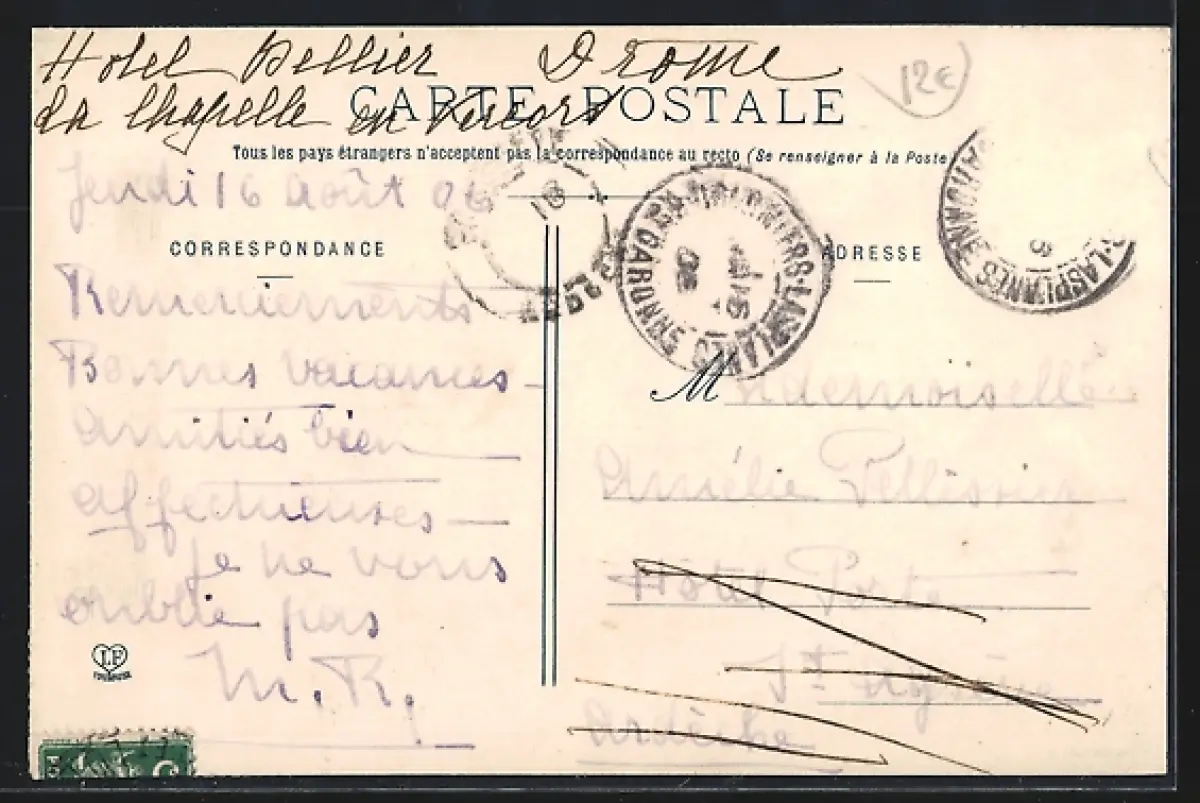 Hotel Pellier Drome
la Chapelle en Vercors
12€
CARTE POSTALE
Tous les pays étrangers n'acceptent pas la correspondance au recto (Se renseigner à la Poste
Jeudi 16 Août 06
CORRESPONDANCE
Remerciements
Bonnes vacances -
Amitiés bien
affectueuses -
je ne vous
oublie pas
M. R.
LF
TOULOUSE
ADRESSE
Mademoiselle
Amélie
Hôtel Poste
St
Ardèche